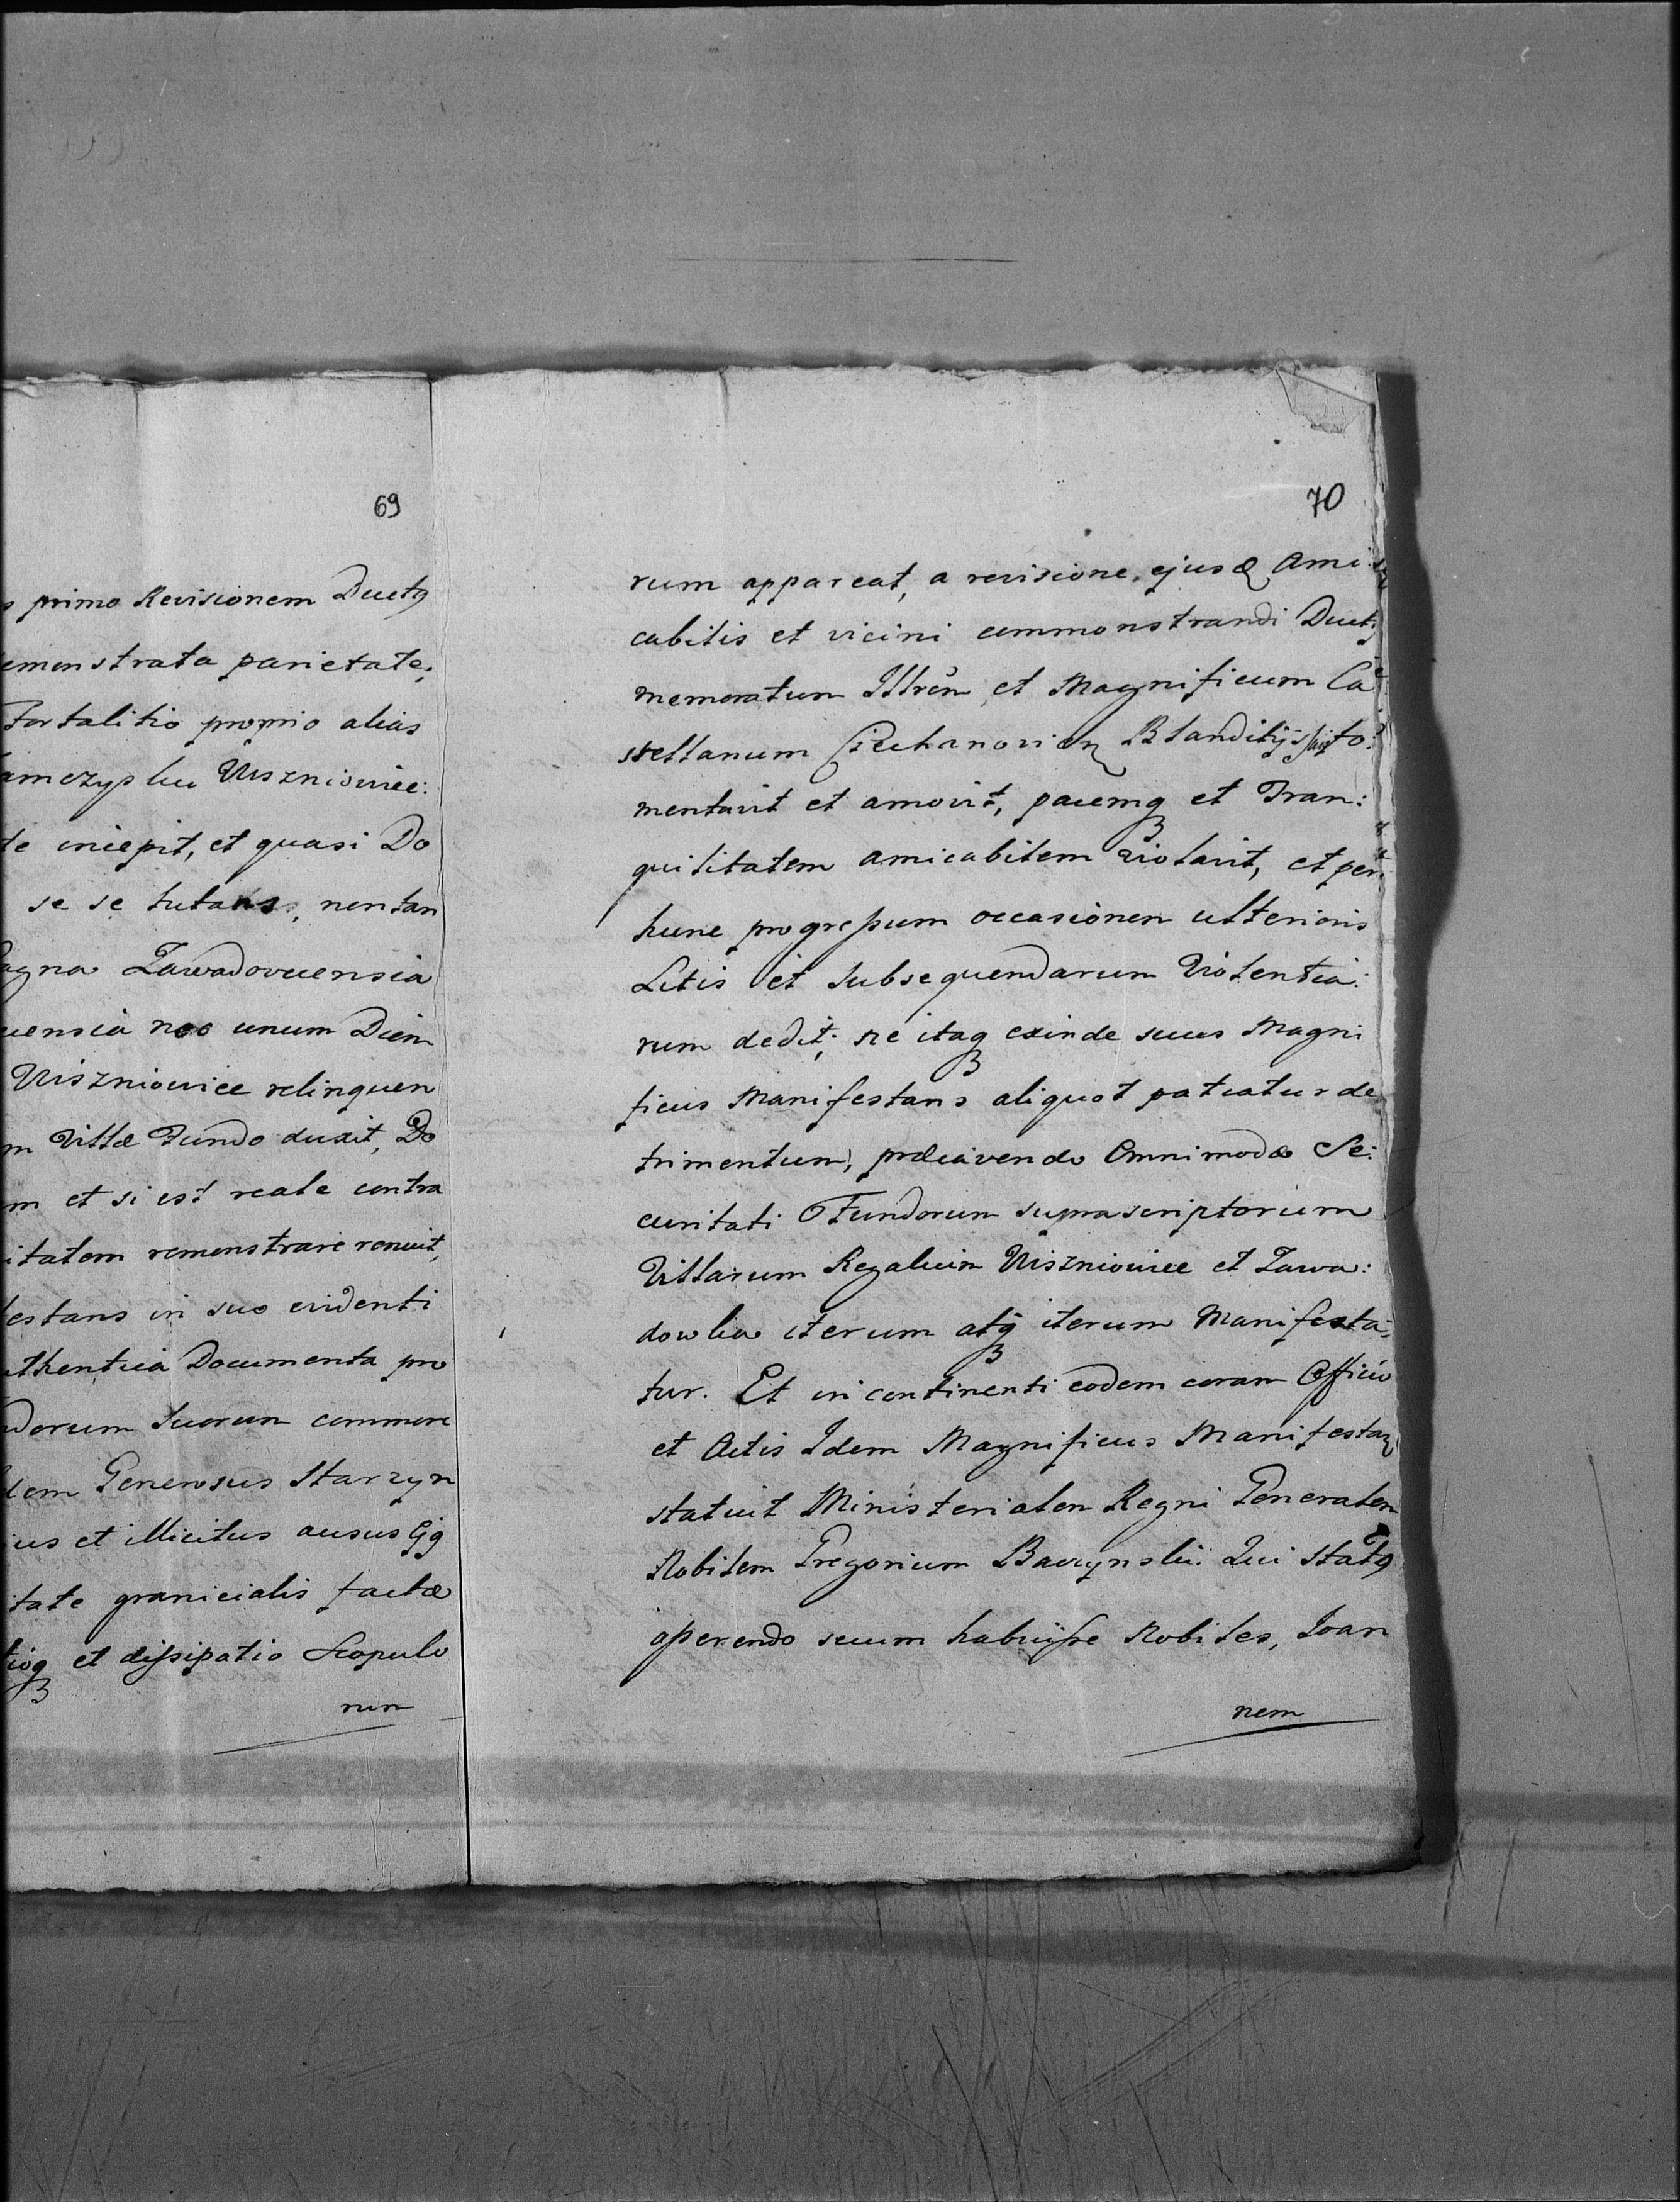 69
primo Revisionem Ductq
emonstrata parietate;
Fortalitio proprio alias
amczysku Wiszniowiec:
te incepit, et quasi Do
se se tutans, nontan
agna Zawadovcensia
censia nec unum Diem
Wiszniowice relinquen
m Villæ Fundo duxit, Do
m et si est reale contra
itatem remonstrare renuit,
estans in suo evidenti
uthentica Documenta pro
dorum Suorum commore
dem Generosus Starzyn
ius et illicitus ausus
itate granicialis factæ
tioq et dissipatio Scopulo
rum
70
rum appareat, a revisione, ejusq Ami
cabilis et vicini commonstrandi Duct
memoratum Illrem et Magnificum Ca
stellanum Ciechanovien Blanditijs
mentavit et amovit, pacemq et Tran:
quilitatem amicabilem violavit, et per
hunc progressum occasionem ulterioris
Litis et Subsequendarum Violentia:
rum dedit; ne itaq exinde suus Magni
ficus Manifestans aliquot patiatur de
trimentum, præcavendo Omnimodæ Se:
curitati Fundorum suprascriptorum
Villarum Regalium Wiszniowice et Zawa:
dowka iterum atq iterum Manifesta:
tur. Et in continenti eodem coram Officio
et Actis Idem Magnificus Manifestan
statuit Ministerialem Regni Generalem
Nobilem Gregorium Baczynski. Qui Statq
asserendo secum habuisse Nobiles, Ioan
nem